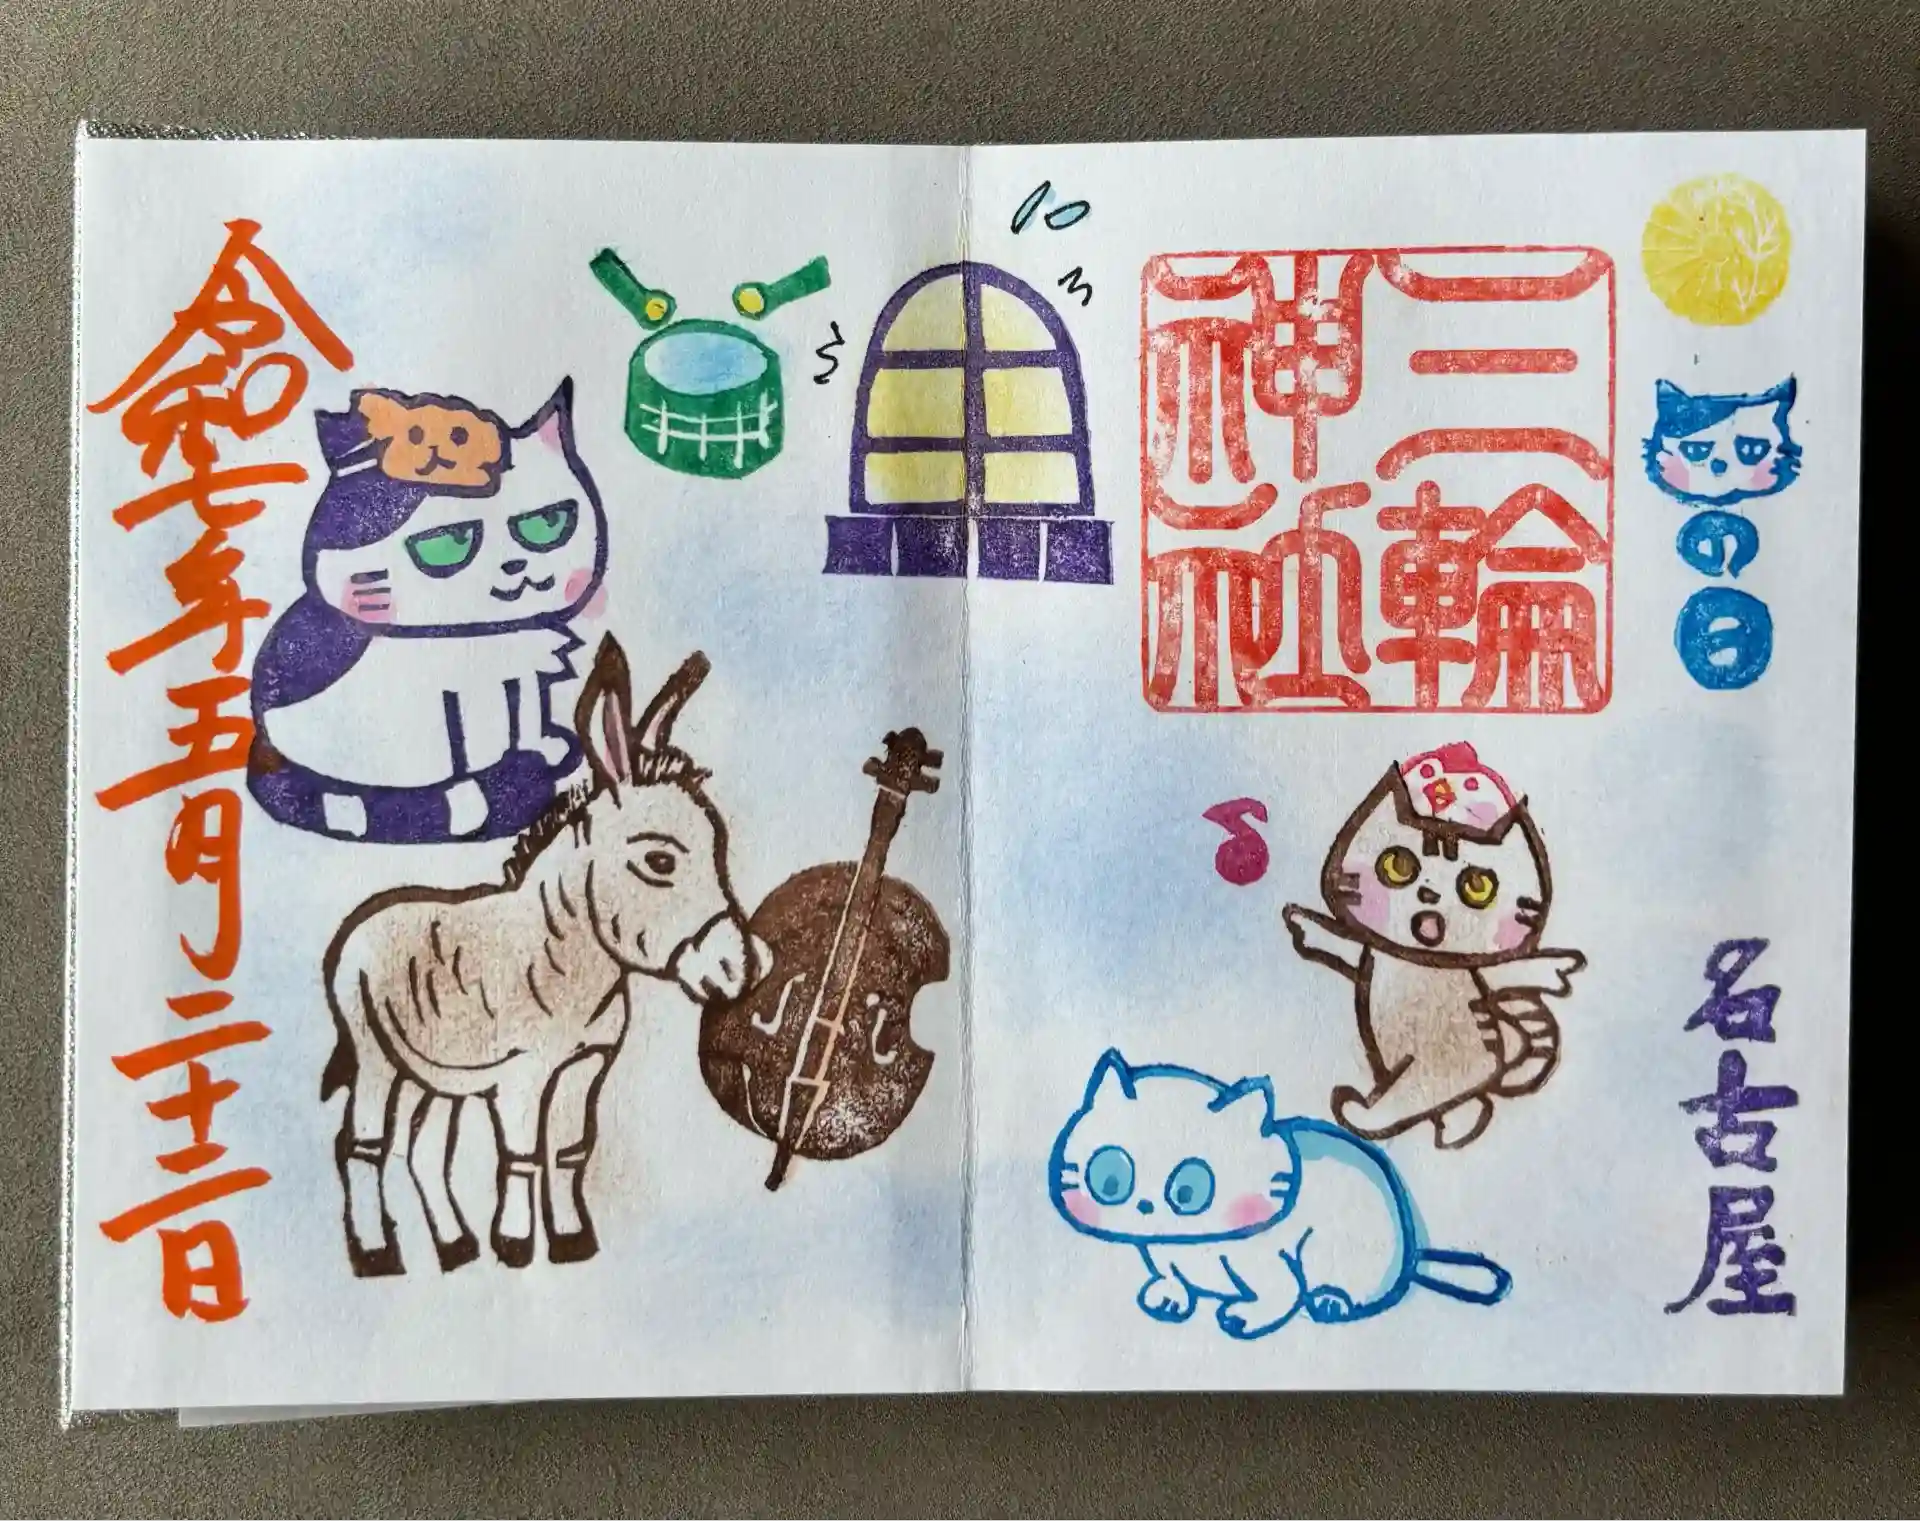 の日
三輪
神社
名古屋
令和七年五月二十二日